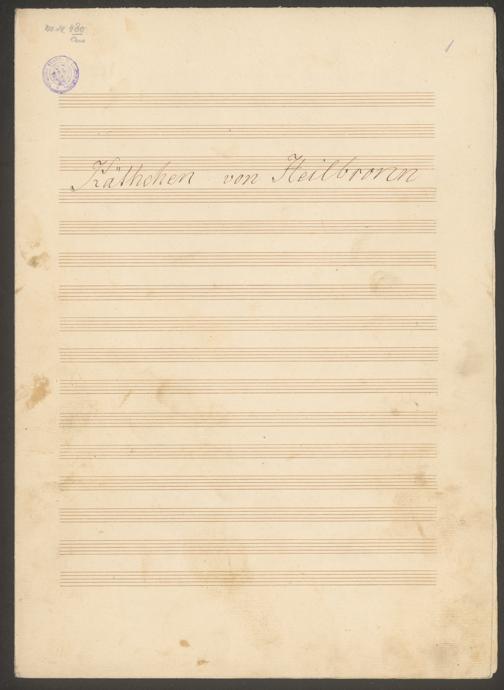 1
Käthchen von Heilbronn